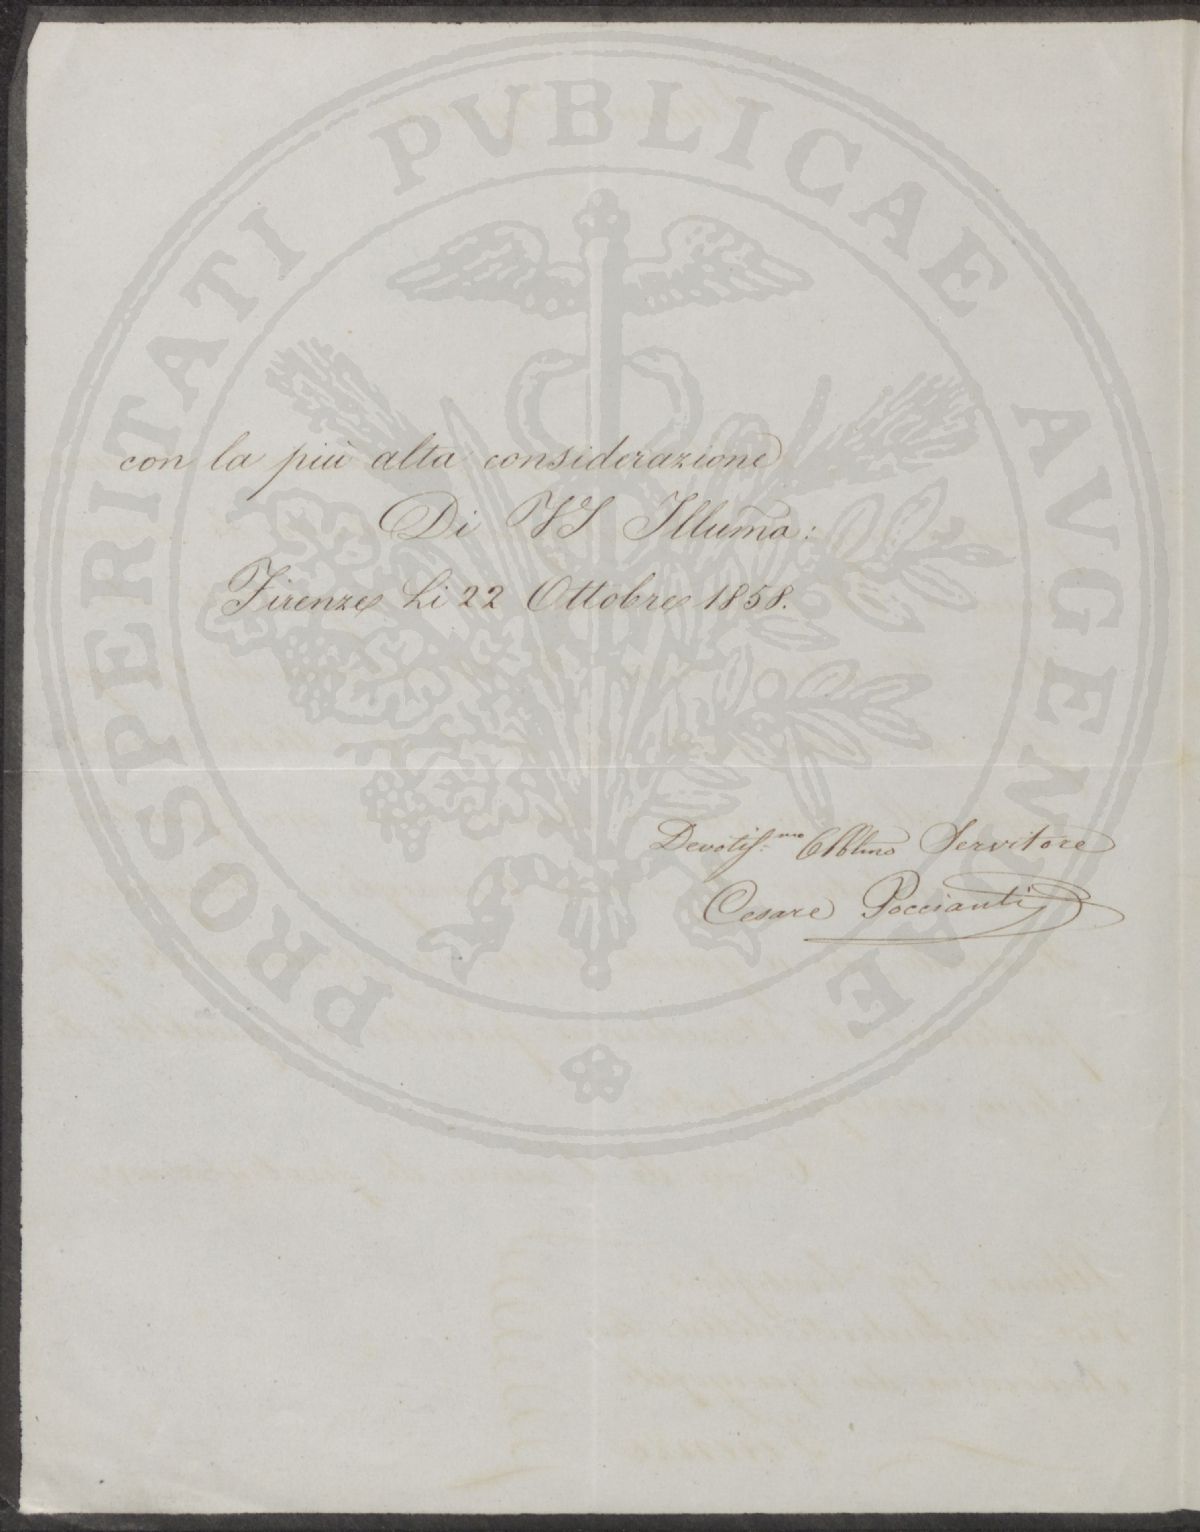 PROSPERITATI PVBLICAE AVGENDAE
con la più alta considerazione
Di VS Illuma:
Firenze Li 22 Ottobre 1858.
Devotis.mo Obblmo Servitore
Cesare Poccianti